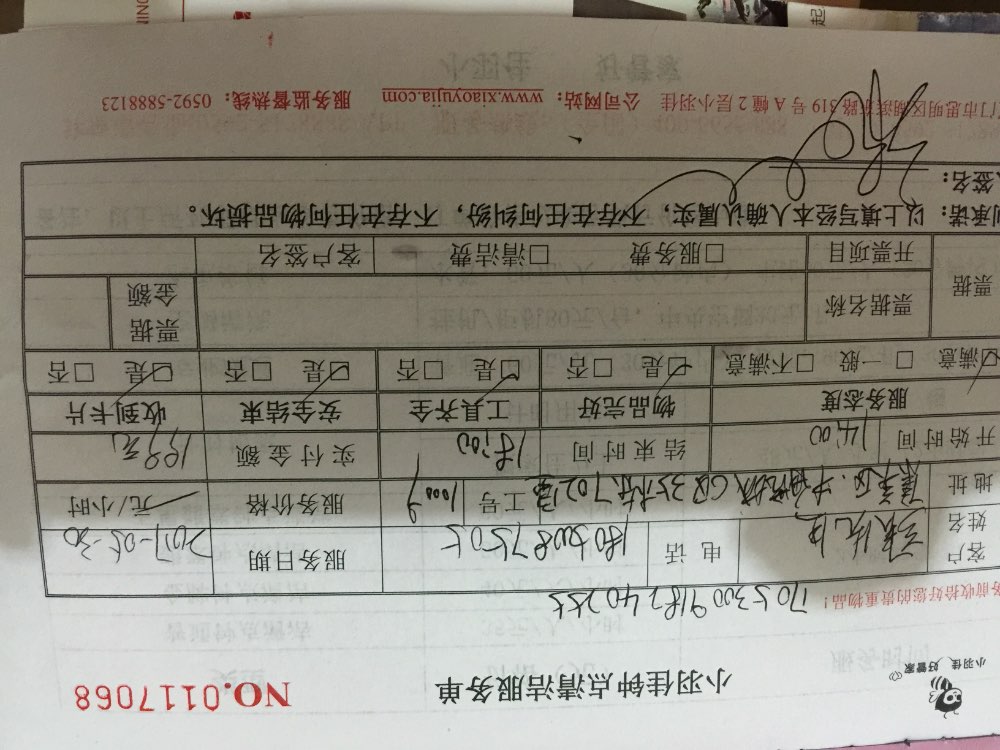 小羽佳 好管家
小羽佳钟点清洁服务单
NO.0117068
务前收拾好您的贵重物品!
705300918240255
客户姓名 电话 18030087505 服务日期 2017-05-30
地址 工号 10009 服务价格 元/小时
开始时间 14:00 结束时间 18:00 实付金额 199元
服务态度 物品完好 工具齐全 安全结束 收到卡片
满意 一般 不满意 是 否 是 否 是 否 是 否
票据 票据名称 票据金额
开票项目 服务费 清洁费 客户签名
承诺:以上填写经本人确认属实,不存在任何纠纷,不存在任何物品损坏。
签名:
门市思明区湖滨东路 319 号 A 幢 2 层小羽佳 公司网站:www.xiaoyujia.com 服务监督热线:0592-5888123